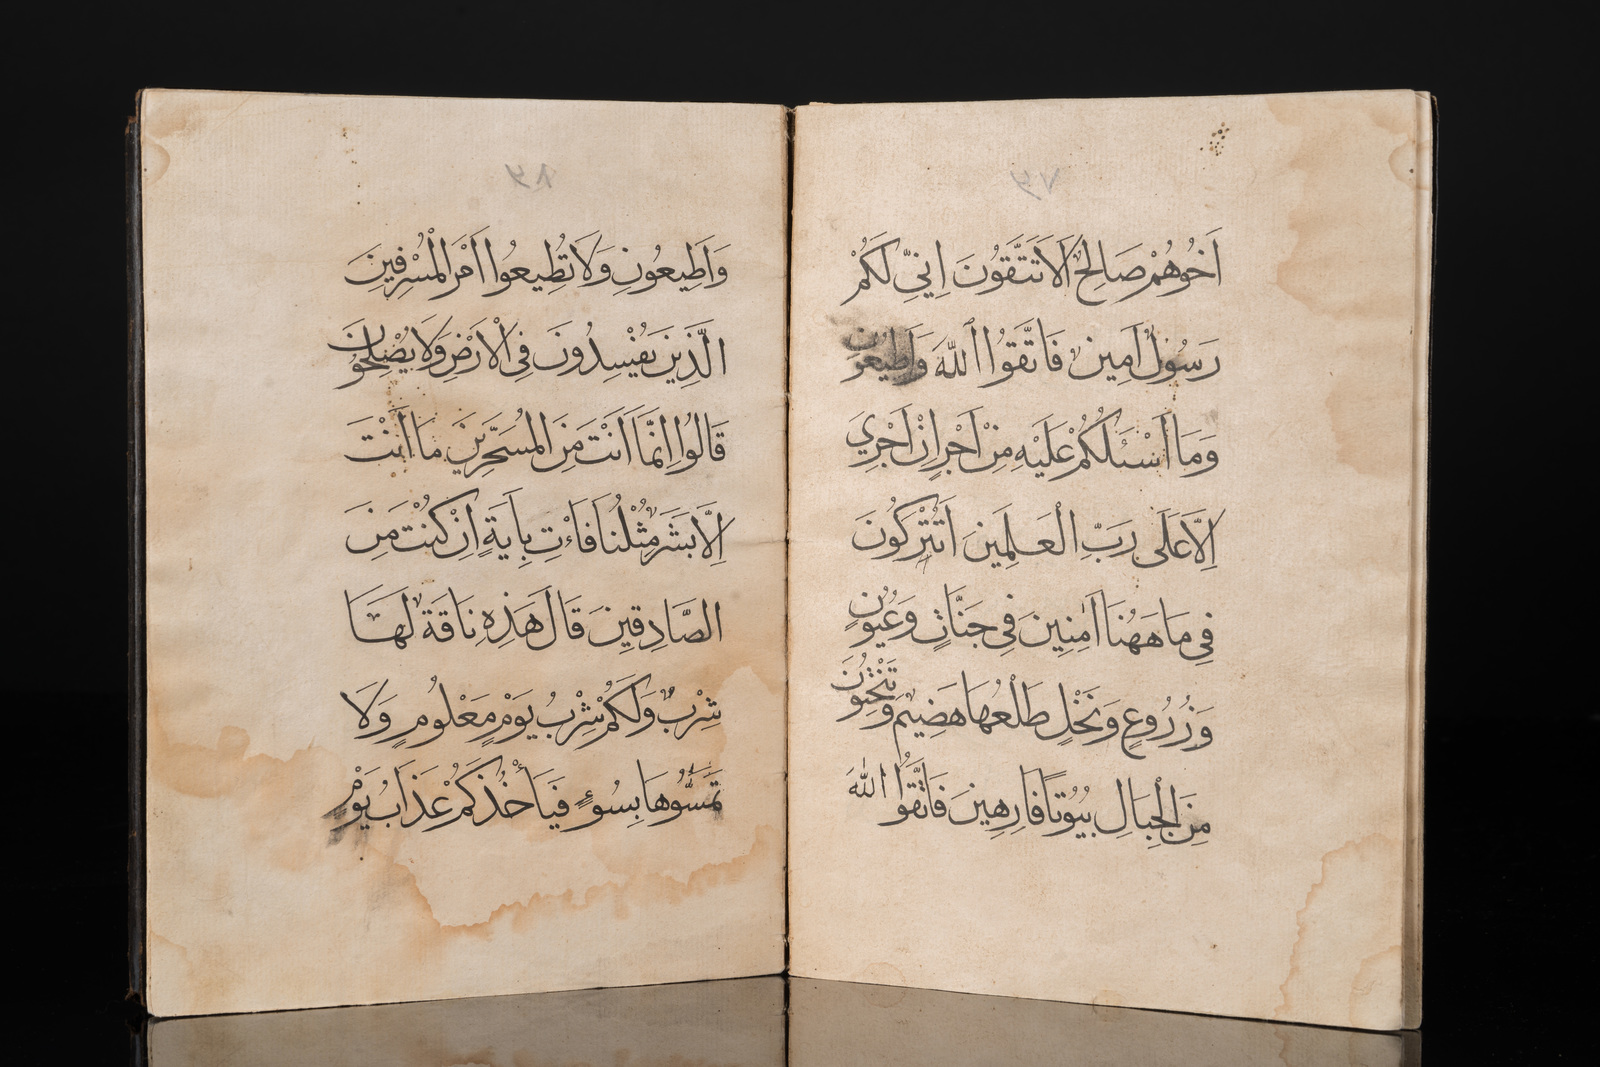 اَخُوهُمْ صَالِحٌ اَلَا تَتَّقُونَ اِنِّي لَكُمْ
رَسُولٌ اَمِينٌ فَاتَّقُوا اللّٰهَ وَاَطِيعُونِ
وَمَا اَسْـَٔلُكُمْ عَلَيْهِ مِنْ اَجْرٍ اِنْ اَجْرِيَ
اِلَّا عَلَى رَبِّ الْعَـلَمِينَ اَتُتْرَكُونَ
فِي مَا هَهُنَا اٰمِنِينَ فِي جَنَّاتٍ وَعُيُونٍ
وَزُرُوعٍ وَنَخْلٍ طَلْعُهَا هَضِيمٌ وَتَنْحِتُونَ
مِنَ الْجِبَالِ بُيُوتًا فَارِهِينَ فَاتَّقُوا اللّٰهَ
وَاَطِيعُونِ وَلَا تُطِيعُوا اَمْرَ الْمُسْرِفِينَ
الَّذِينَ يُفْسِدُونَ فِى الْاَرْضِ وَلَا يُصْلِحُونَ
قَالُوا اِنَّمَا اَنْتَ مِنَ الْمُسَحَّرِينَ مَا اَنْتَ
اِلَّا بَشَرٌ مِثْلُنَا فَاْءتِ بِاَيَةٍ اِنْ كُنْتَ مِنَ
الصَّادِقِينَ قَالَ هَذِهِ نَاقَةٌ لَهَا
شِرْبٌ وَلَكُمْ شِرْبُ يَوْمٍ مَعْلُومٍ وَلَا
تَمَسُّوهَا بِسُوءٍ فَيَأْخُذَكُمْ عَذَابُ يَوْمٍ